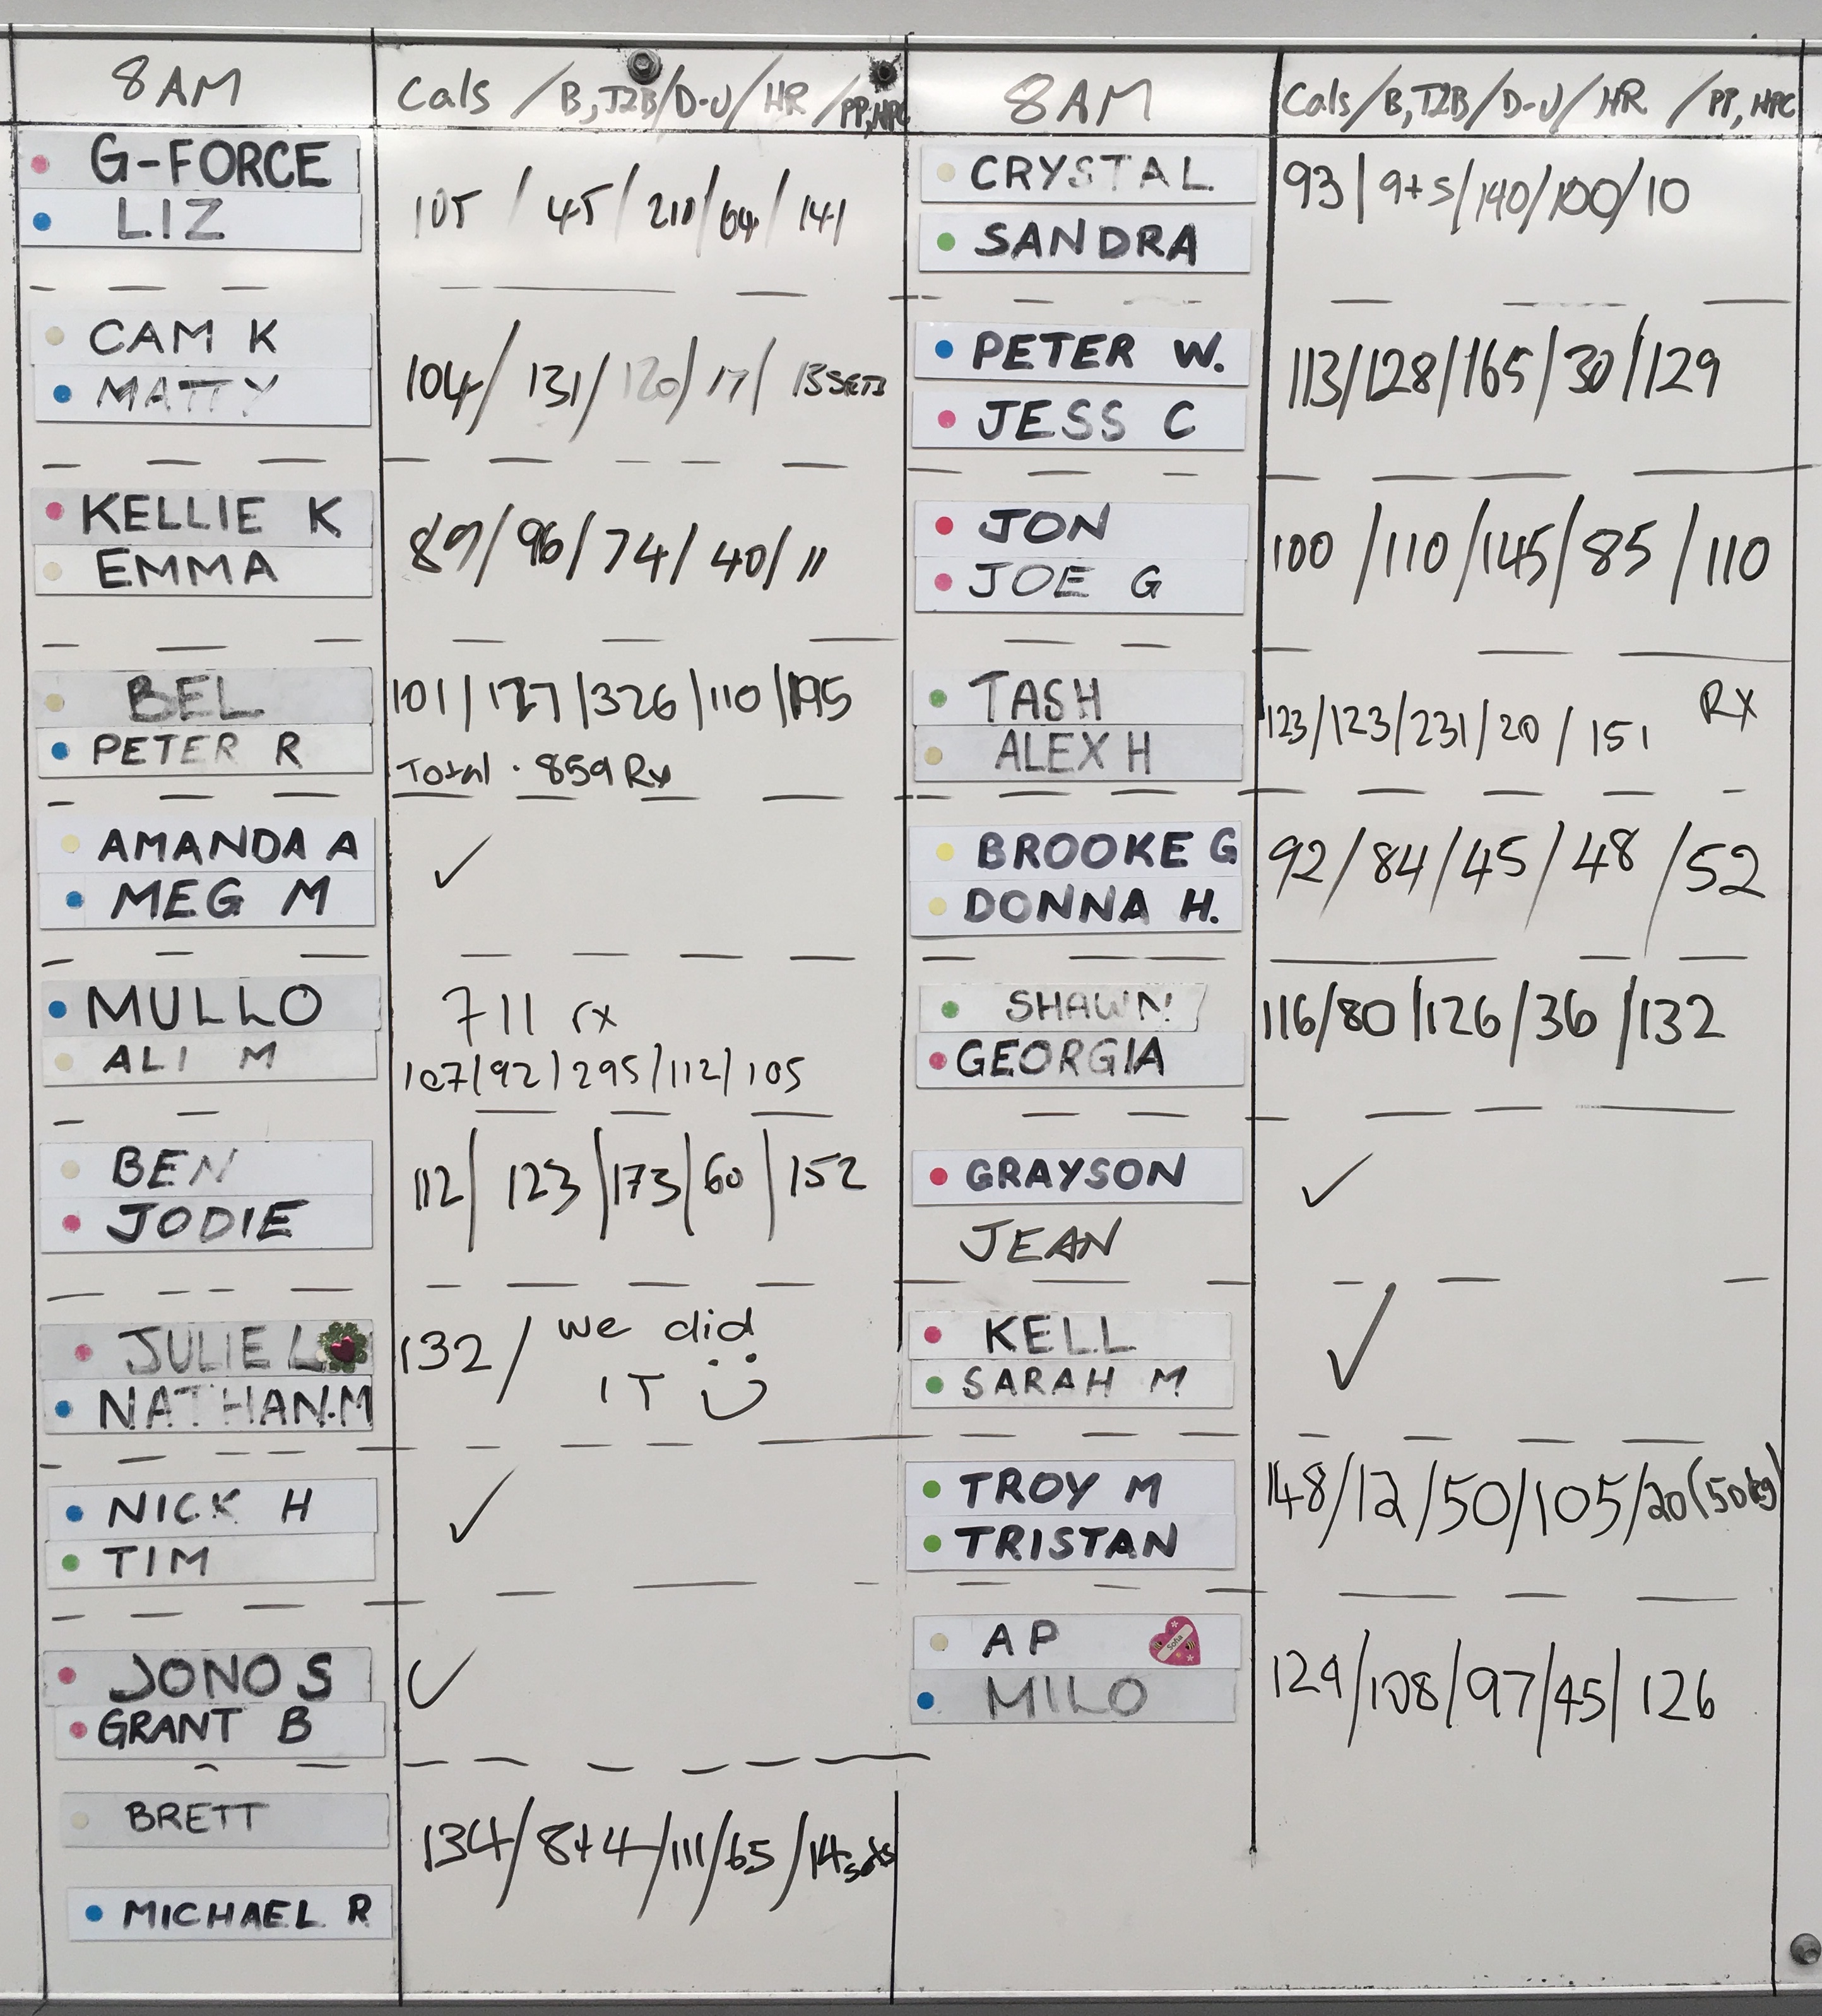 8AM
Cals / B, T2B / D-U / HR / PP, HPC
G-FORCE
LIZ
105 / 45 / 210 / 64 / 141
CAM K
MATTY
104 / 131 / 120 / 17 / 13 SETS
KELLIE K
EMMA
89 / 96 / 74 / 40 / 11
BEL
PETER R
101 / 127 / 326 / 110 / 195
Total . 859 Rx
AMANDA A
MEG M
✓
MULLO
ALI M
711 rx
107 / 92 / 295 / 112 / 105
BEN
JODIE
112 / 123 / 173 / 60 / 152
JULIE L
NATHAN.M
132 / we did
IT
NICK H
TIM
✓
JONO S
GRANT B
✓
BRETT
MICHAEL R
134 / 8+4 / 111 / 65 / 14 sets
8AM
Cals / B, T2B / D-U / HR / PP, HPC
CRYSTAL
SANDRA
93 / 9+5 / 140 / 100 / 10
PETER W.
JESS C
113 / 128 / 165 / 30 / 129
JON
JOE G
100 / 110 / 145 / 85 / 110
TASH
ALEX H
123 / 123 / 231 / 20 / 151 RX
BROOKE G
DONNA H.
92 / 84 / 45 / 48 / 52
SHAWN
GEORGIA
116 / 80 / 126 / 36 / 132
GRAYSON
JEAN
✓
KELL
SARAH M
✓
TROY M
TRISTAN
148 / 12 / 50 / 105 / 20 (50kg)
AP
MILO
129 / 108 / 97 / 45 / 126